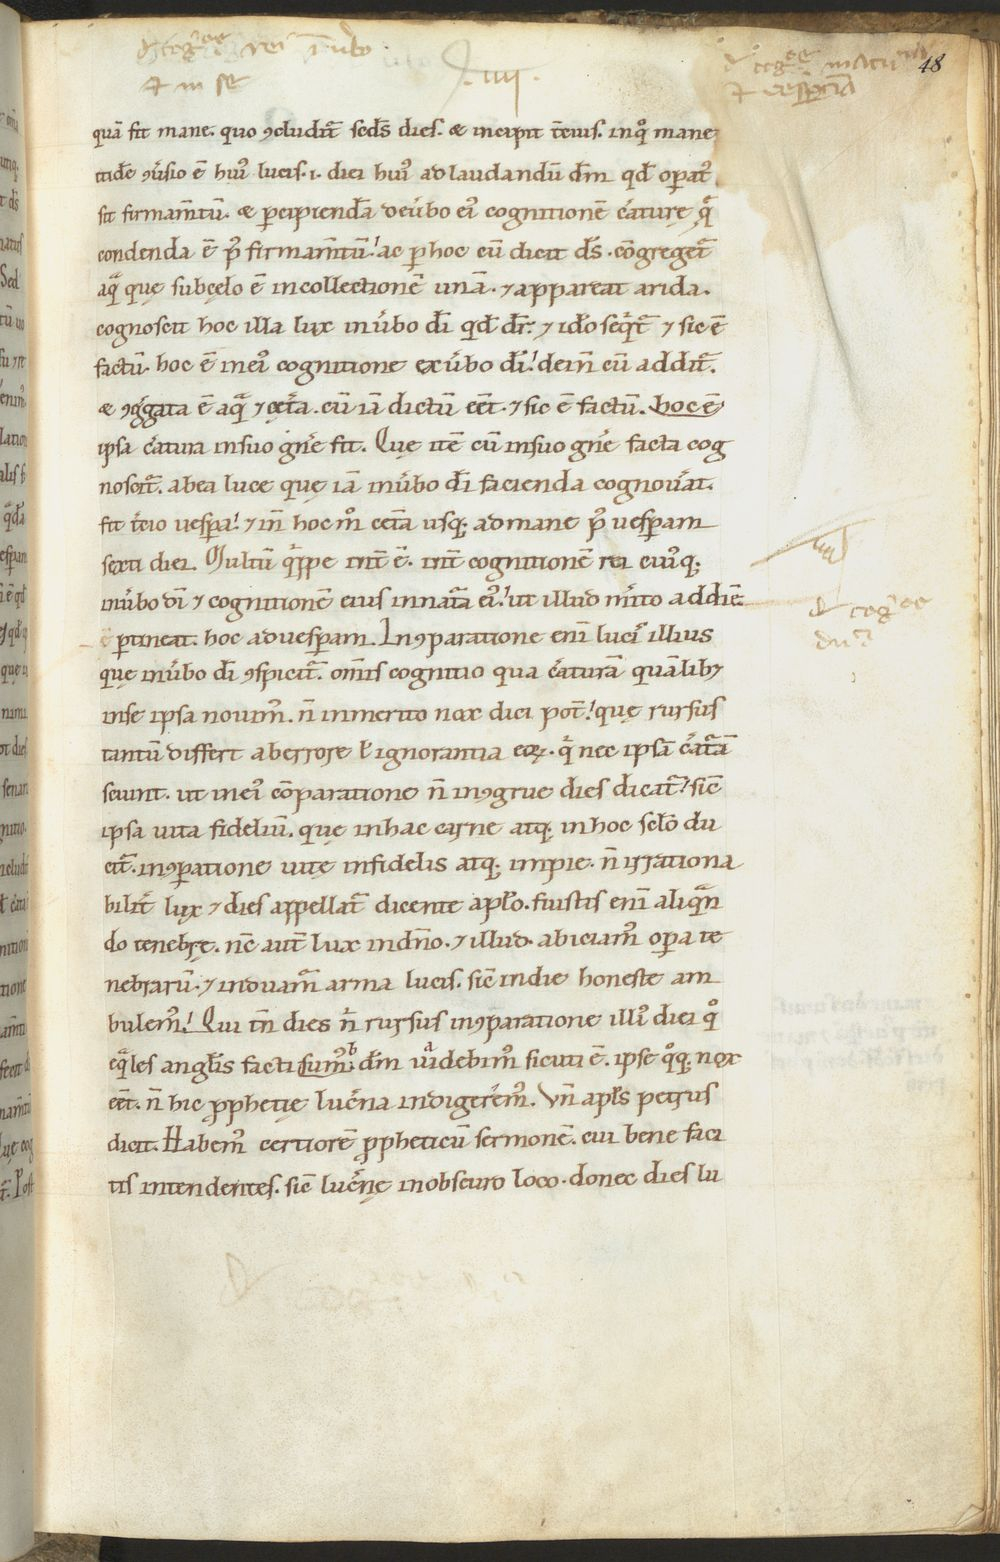 .IIII.
48
quā fit mane. quo ꝯcludit̄ scds̄ dies. & incipit t̄cius. inqͦ mane
itidē ꝯuͥsio ē huiꝰ lucis. i. diei huiꝰ ad laudandū dm̄ qd̄ opat̉
sit firmam̄tū. & ꝑcipienda deuͥbo eiꝰ cognitionē c̄aturę qͣ
condenda ē p̉ firmam̄tū. ac ꝑ hoc cū dicit ds̄. cōgreget̄
aqͣ que subcęlo ē incollectionē unā. ⁊ appareat arida.
cognoscit hoc illa lux inuͥbo dī qd̄ dr̄. ⁊ idō seqͥt̄ ⁊ sic ē
factū. hoc ē ineiꝰ cognitione exuͥbo dī. dein̄ cū addit̄.
& ꝯgͥgata ē aqͣ ⁊ cet̉a. cū iā dictū eēt. ⁊ sic ē factū. hoc ē
ipsa c̄atura insuo gn̄e fit. Quę itē cū insuo gn̄e facta cog
noscit̄. abea luce quę iā inuͥbo dī facienda cognoūat.
fit t̄cio uesꝑa. ⁊ in̄ hoc mͦ cet̄a usq; admane p̉ uesꝑam
sexti diei. Multū qͥppe int̄ ē. int̄ cognitionē rei cuiꝰq;
inuͥbo dī ⁊ cognitionē eius innat̄a eiꝰ. ut illud mīto addiē
ē ꝑtineat. hoc aduesꝑam. Inꝯparatione enī lucis illius
quę inuͥbo dī ꝯspicit̄. om̄is cognitio qua c̄aturā quālibꝫ
inse ipsa nouimꝰ. n̄ inmerito nox dici pot̄. quę rursus
tantū differt aberrore ł ignorantia eoꝝ. qͥ nec ipsā c̄at̄ā
sciunt. ut ineiꝰ cōparatione n̄ inꝯgrue dies dicat̄. sic̄
ipsa uita fideliū. quę inhac carne atq; inhoc scl̄o du
cit̄. inꝯparatione uitę infidelis atq; impie. n̄ irrationa
bilit̄ lux ⁊ dies appellat̄ dicente apl̄o. fuistis enī aliqͣn
do tenebrę. nc̄ aut̄ lux indn̄o. ⁊ illud. abiciamꝰ opera te
nebrarū. ⁊ induamͣ arma lucis. sic̄ indie honeste am
bulemꝰ. Qui tn̄ dies n̄ rursus inꝯparatione illiꝰ diei qͦ
eqͣles anglīs facti sumꝰᵇ dm̄ uͥdebimꝰ sicuti ē. ipse qͦq; nox
eēt. n̄ hic ꝓphetię luc̄na indigerēmꝰ. Vn̄ apl̄s petrus
dicit. Habemꝰ certiorē ꝓpheticū sermonē. cui bene faci
tis intendentes. sic̄ luc̄nę inobscuro loco. donec dies lu